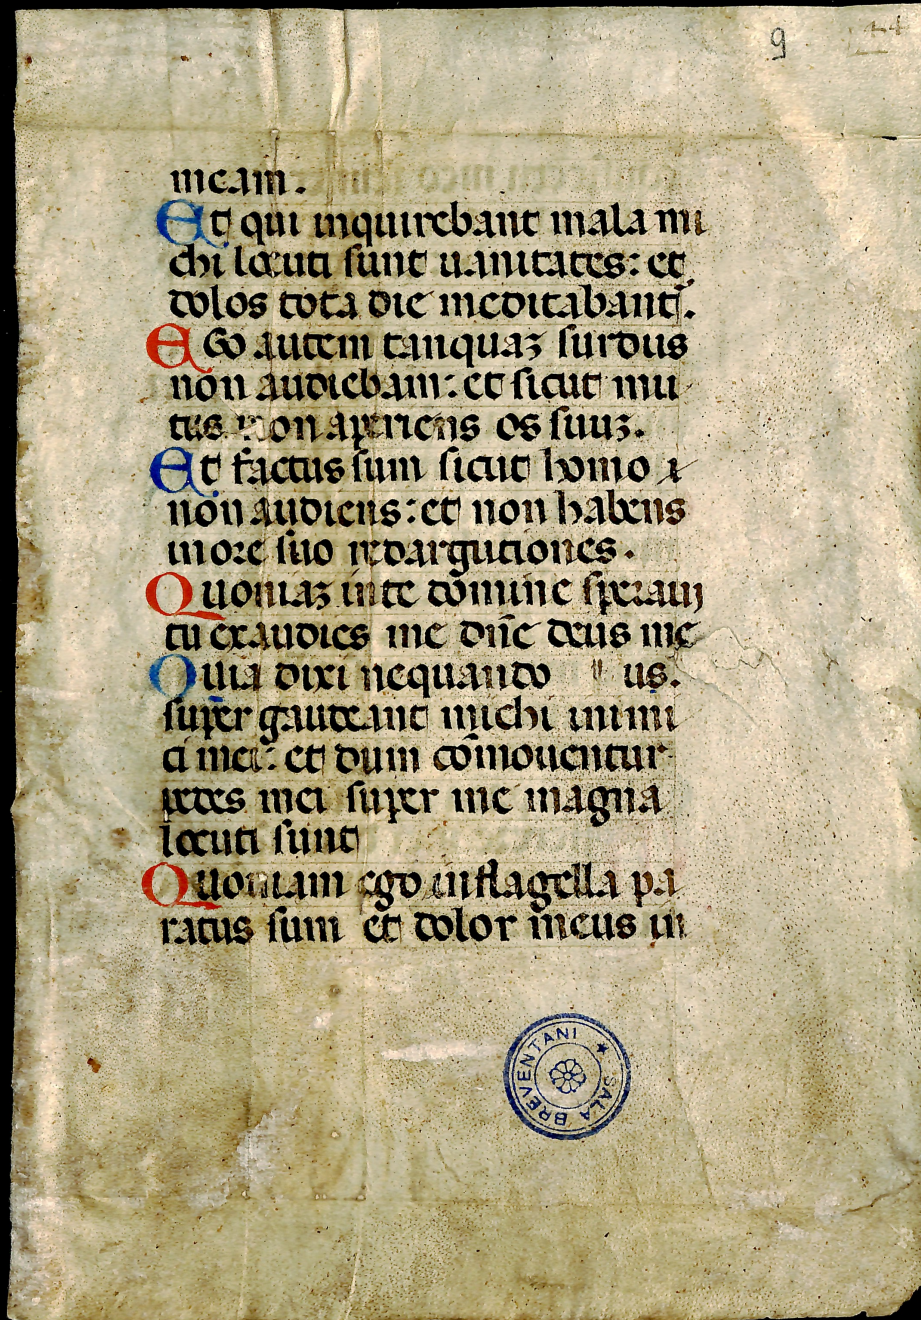 9
44
meam.
Et qui inquirebant mala mi
chi locuti sunt uanitates: et
dolos tota die meditabant̄.
Ego autem tanquaʒ surdus
non audiebam: et sicut mu
tus non aperiens os suuʒ.
Et factus sum sicut homo
non audiens: et non habens
in ore suo redargutiones.
Quoniaʒ in te domine speraui
tu exaudies me dn̄e deus me
Quia dixi nequando us.
super gaudeant michi inimi
ci mei: et dum cōmouentur
pedes mei super me magna
locuti sunt
Quoniam ego in flagella pa
ratus sum et dolor meus in
SALA BREVENTANI